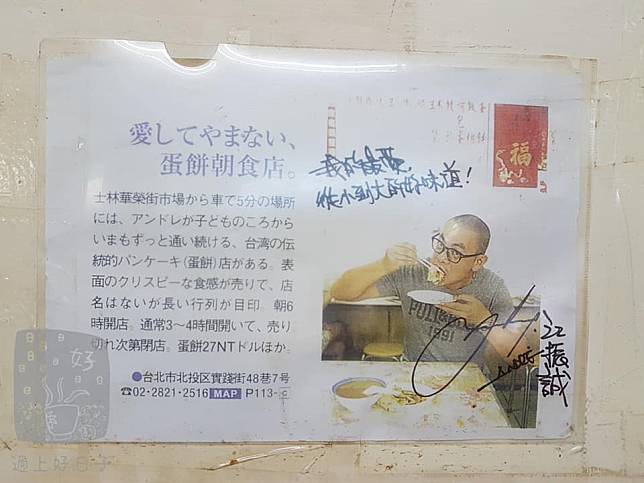 愛してやまない、
蛋餅朝食店。
士林華榮街市場から車て5分の場所
には、アンドレが子どものころから
いまもずっと通い続ける、台湾の伝
統的パンケーキ(蛋餅)店がある。表
面のクリスピーな食感が売りて、店
名はないが長い行列が目印。朝6
時開店。通常3〜4時間開いて、売り
切れ次第閉店。蛋餅27NTドルほか。
●台北市北投区實踐街48巷7号
☎02・2821・2516 MAP P113-C
福
我的最愛,
從小到大的好味道!
POLICE
1991
江振誠
好
過上好日子